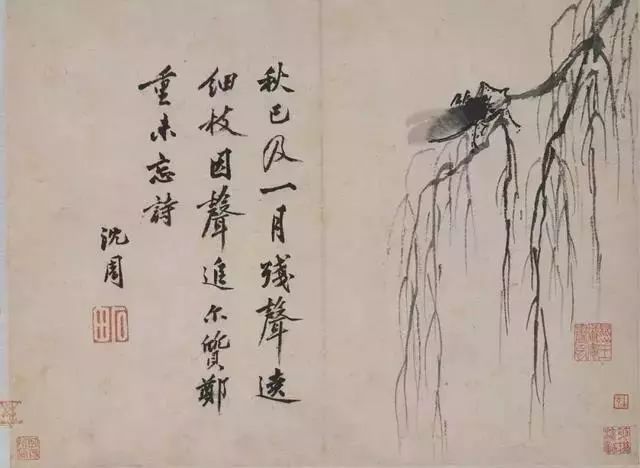 秋已及一月殘聲遶
細枝因聲追尒質鄭
重未忘詩
沈周
石田